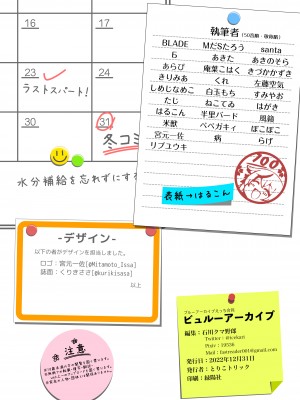 23
24
ラストスパート!
30
31
冬コミ
水分補給を忘れずにする
執筆者(50音順・敬称略)
BLADE MだSたろう santa
あきた あきのそら
あらび 庵葉こはく きづかかずき
きりみあ くれ 左藤空気
しめじなめこ 白玉もち すみやお
たじ ねこてゐ はがき
はるこん 半里バード 風籟
米獣 ベベガキィ ぽこぽこ
宮元一佐 病 らげ
リブユウキ
700
表紙→はるこん
-デザイン-
以下の者がデザインを担当しました。
ロゴ:宮元一佐[@Mitamoto_Issa]
誌面:くりきささ[@kurikisasa]
以上
注意
ブルーアーカイブえっち合同
ビュルーアーカイブ
編集:石川クマ野郎
Twitter:
Pixiv:
Mail:
発行日:2022年12月31日
発行者:とりこトリック
印刷:緑陽社